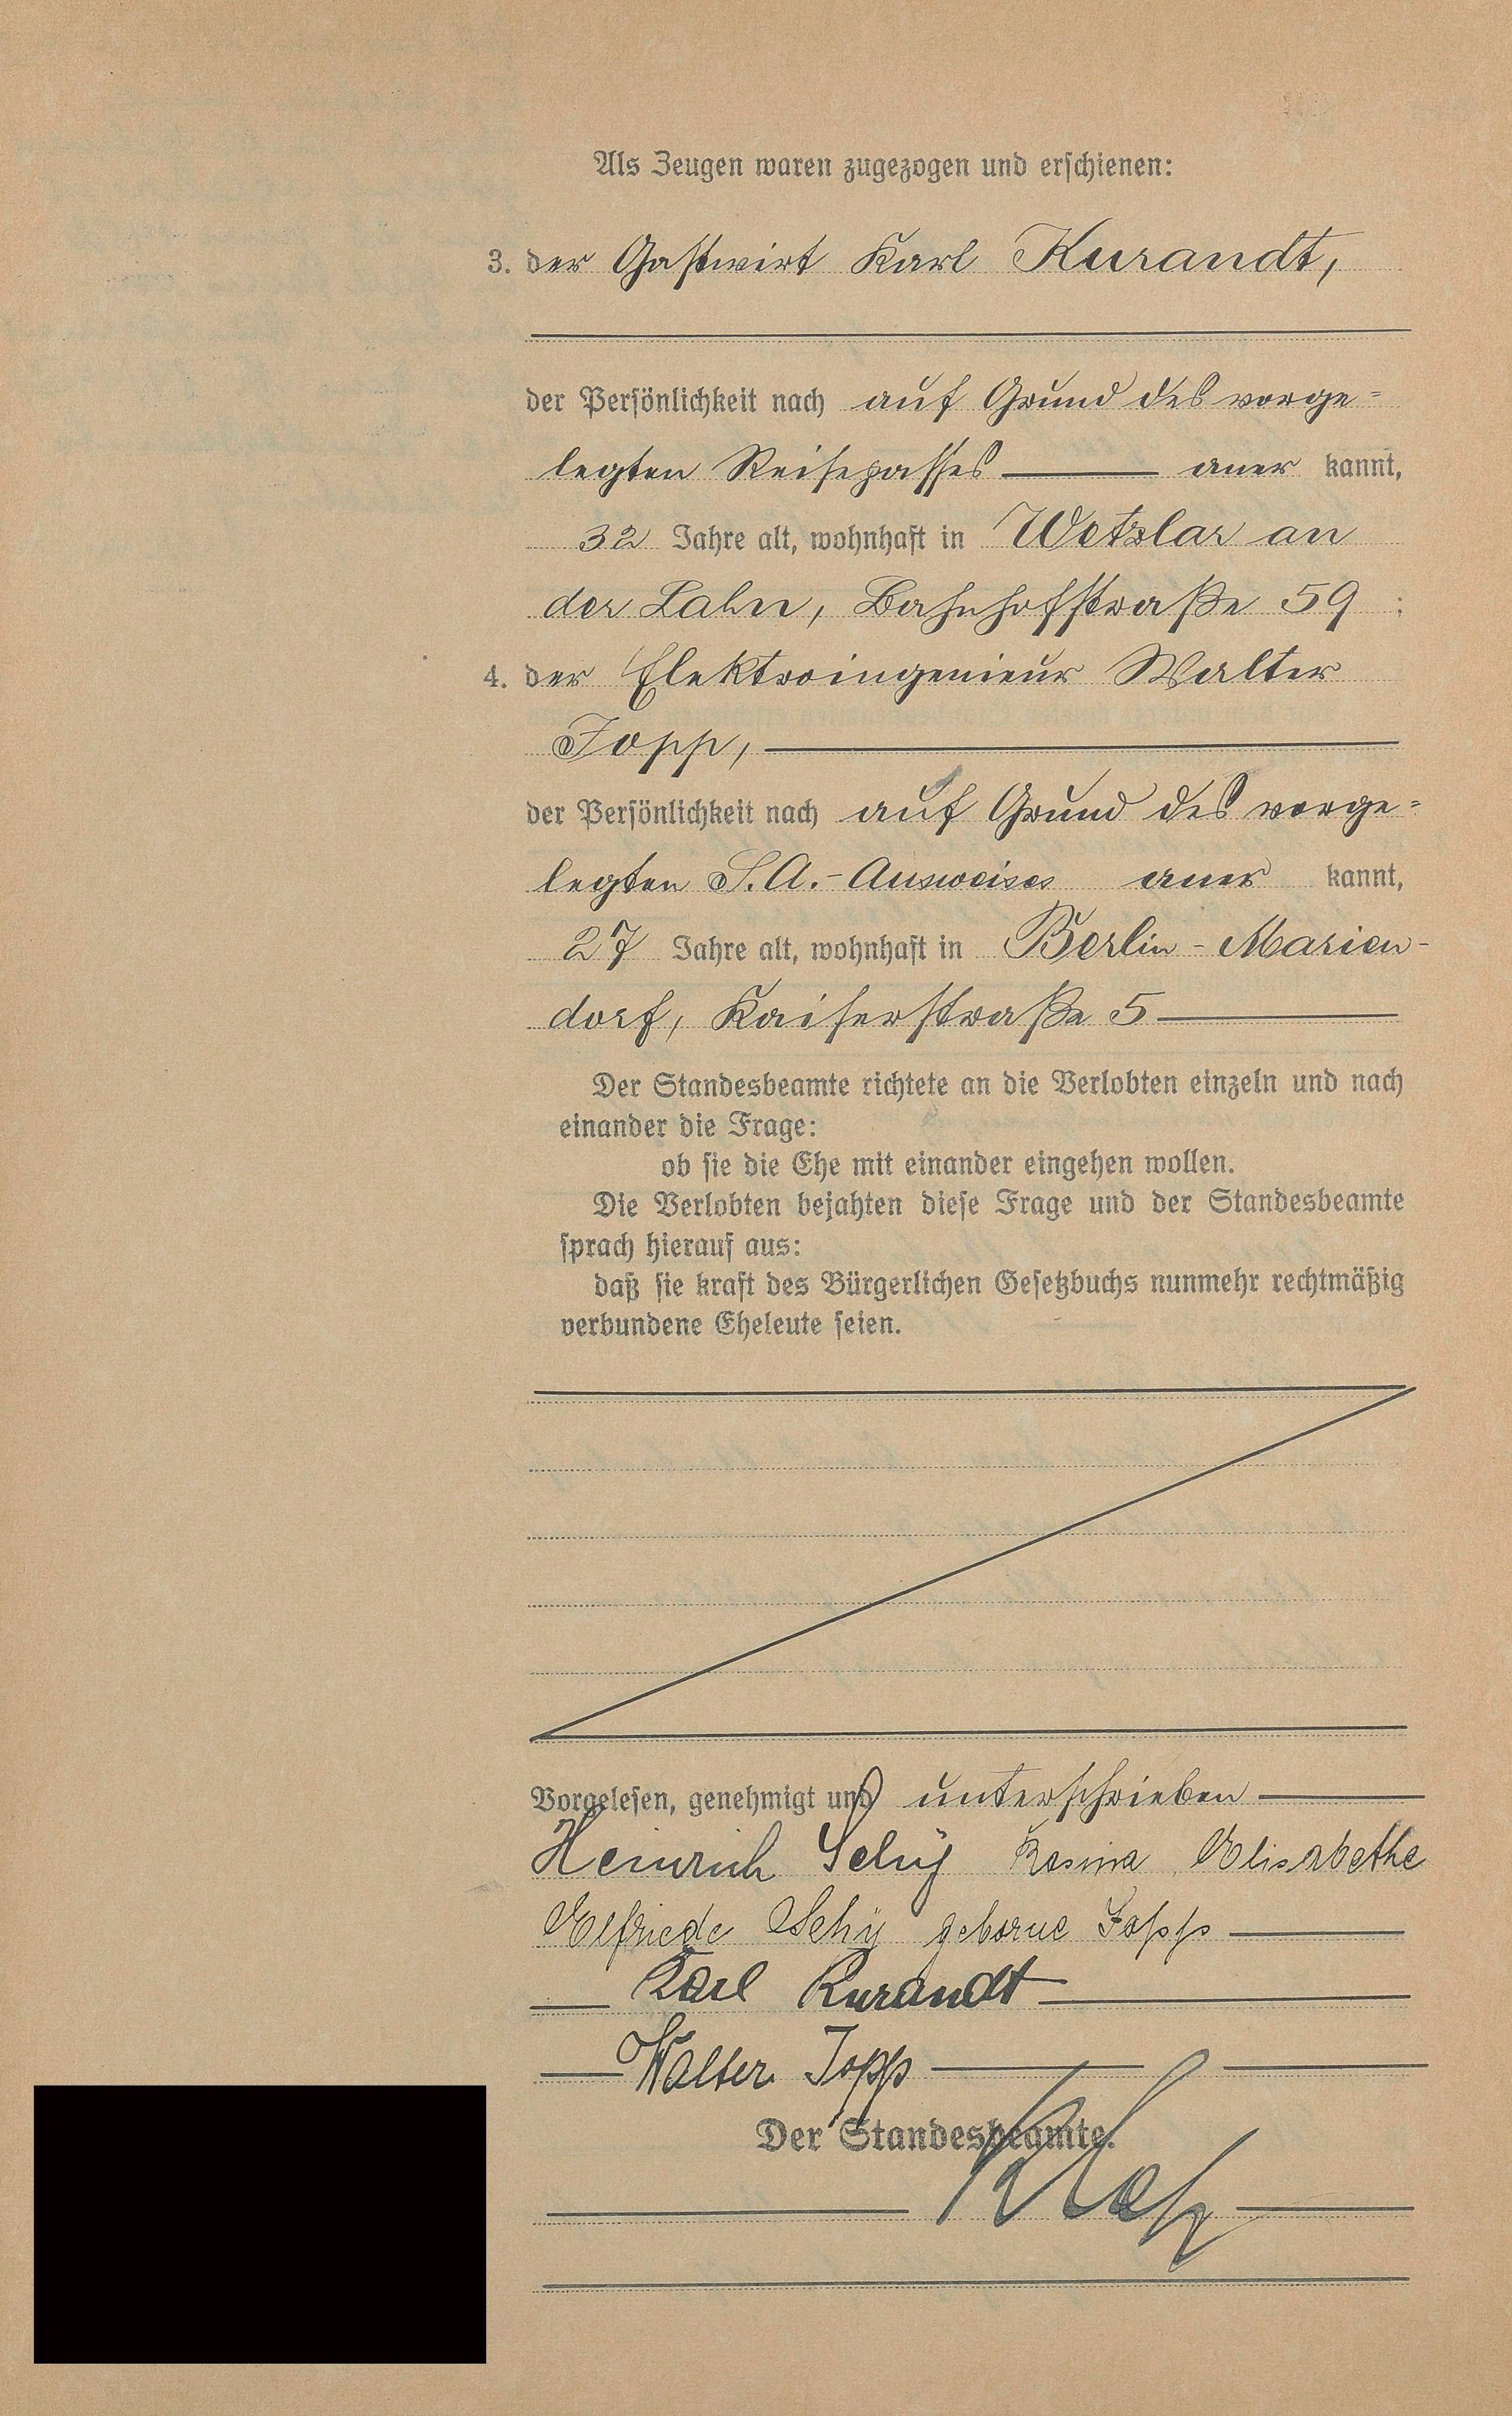 Als Zeugen waren zugezogen und erschienen:
3. der Gastwirt Karl Kurandt,
der Persönlichkeit nach auf Grund des vorge=
legten Reisepasses aner kannt,
32 Jahre alt, wohnhaft in Wetzlar an
der Lahn, Bahnhofstraße 59 ;
4. der Elektroingenieur Walter
Jopp,
der Persönlichkeit nach auf Grund des vorge=
legten S.A.-Ausweises aner kannt,
27 Jahre alt, wohnhaft in Berlin-Marien-
dorf, Kaiserstraße 5
Der Standesbeamte richtete an die Verlobten einzeln und nach
einander die Frage:
ob sie die Ehe mit einander eingehen wollen.
Die Verlobten bejahten diese Frage und der Standesbeamte
sprach hierauf aus:
daß sie kraft des Bürgerlichen Gesetzbuchs nunmehr rechtmäßig
verbundene Eheleute seien.
Vorgelesen, genehmigt und unterschrieben
Heinrich Schÿ Rosina Elisabethe
Elfriede Schÿ geborne Jopp
Karl Kurandt
Walter Jopp
Der Standesbeamte.